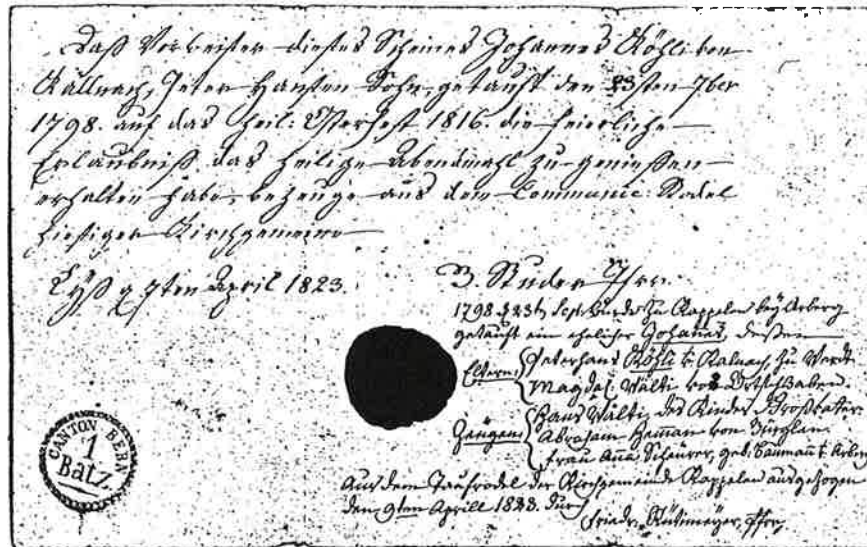 Daß Vorweiser dieses Scheines Johannes Köhli von
Kallnach, Peter Hansen Sohn, getauft den 23sten 7ber
1798. auf das Heil: Osterfest 1816. die feierliche
Erlaubniß das heilige Abendmahl zu genießen
erhalten habe, bezeuge aus dem Communic: Rodel
hiesiger Kirchgemeine
Lyß d 7ten April 1823.
B. Studer Pfrr.
1798. d 23t Sept. wurde zu Kappelen bey Arberg
getauft ein ehelicher Johannes, dessen
Eltern: Peterhans Köhli v. Kalnach, zu Werdt
Magdal. Wälti von
Zeugen: Hans Wälti, des Kindes Großvater
Abraham von
Frau Anna Scheurer, geb. v. Arberg
Aus dem Taufrodel der Kirchgemeinde Kappelen ausgezogen
den 9ten Aprill 1823. durch
Friedr. Rütimeyer, Pfrr.
CANTON BERN
1
Batz.